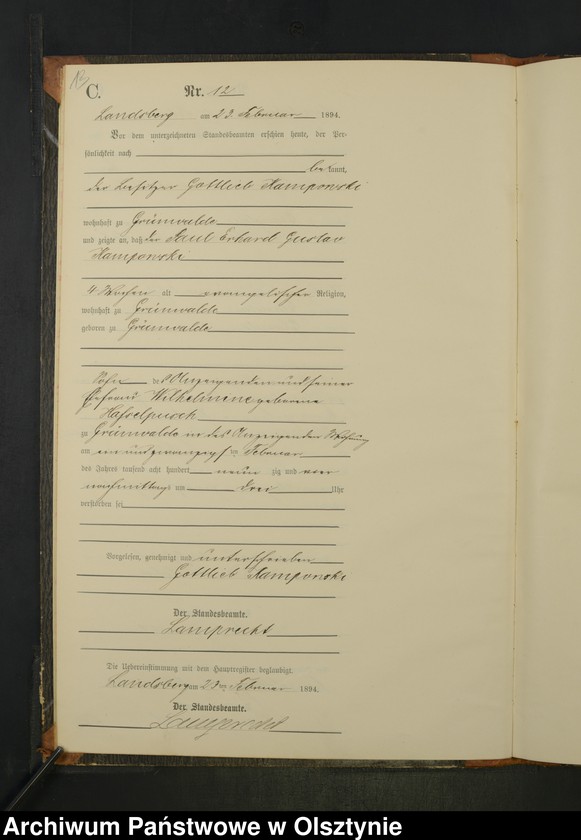 13
C.
Nr. 12
Landsberg am 23. Februar 1894.
Vor dem unterzeichneten Standesbeamten erschien heute, der Per-
sönlichkeit nach
bekannt,
der Besitzer Gottlieb Kampowski
wohnhaft zu Grünwalde
und zeigte an, daß der Paul Erhard Gustav
Kampowski
4 Wochen alt evangelischer Religion,
wohnhaft zu Grünwalde
geboren zu Grünwalde
Sohn des Anzeigenden und seiner
Ehefrau Wilhelmine geborene
Hasselpusch
zu Grünwalde in des Anzeigenden Wohnung
am ein und zwanzigsten Februar
des Jahres tausend acht hundert neun zig und vier
nachmittags um drei Uhr
verstorben sei
Vorgelesen, genehmigt und unterschrieben
Gottlieb Kampowski
Der Standesbeamte.
Lamprecht
Die Uebereinstimmung mit dem Hauptregister beglaubigt.
Landsberg am 23. Februar 1894.
Der Standesbeamte.
Lamprecht
Archiwum Państwowe w Olsztynie